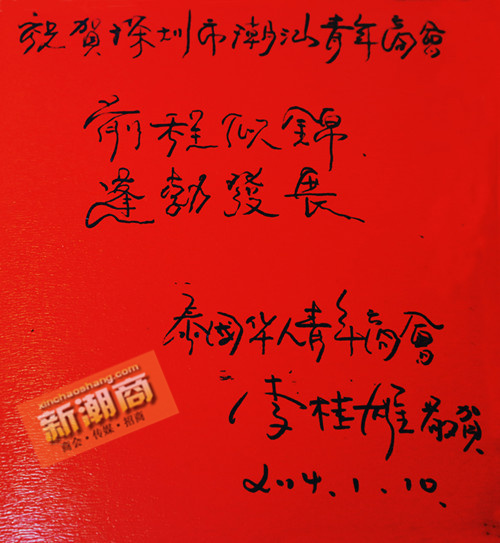 祝賀深圳市潮汕青年商會
前程似錦
蓬勃發展
泰国华人青年商會
李桂雄敬賀
2014.1.10.
xinchaoshang.com
新潮商
商会·传媒·招商